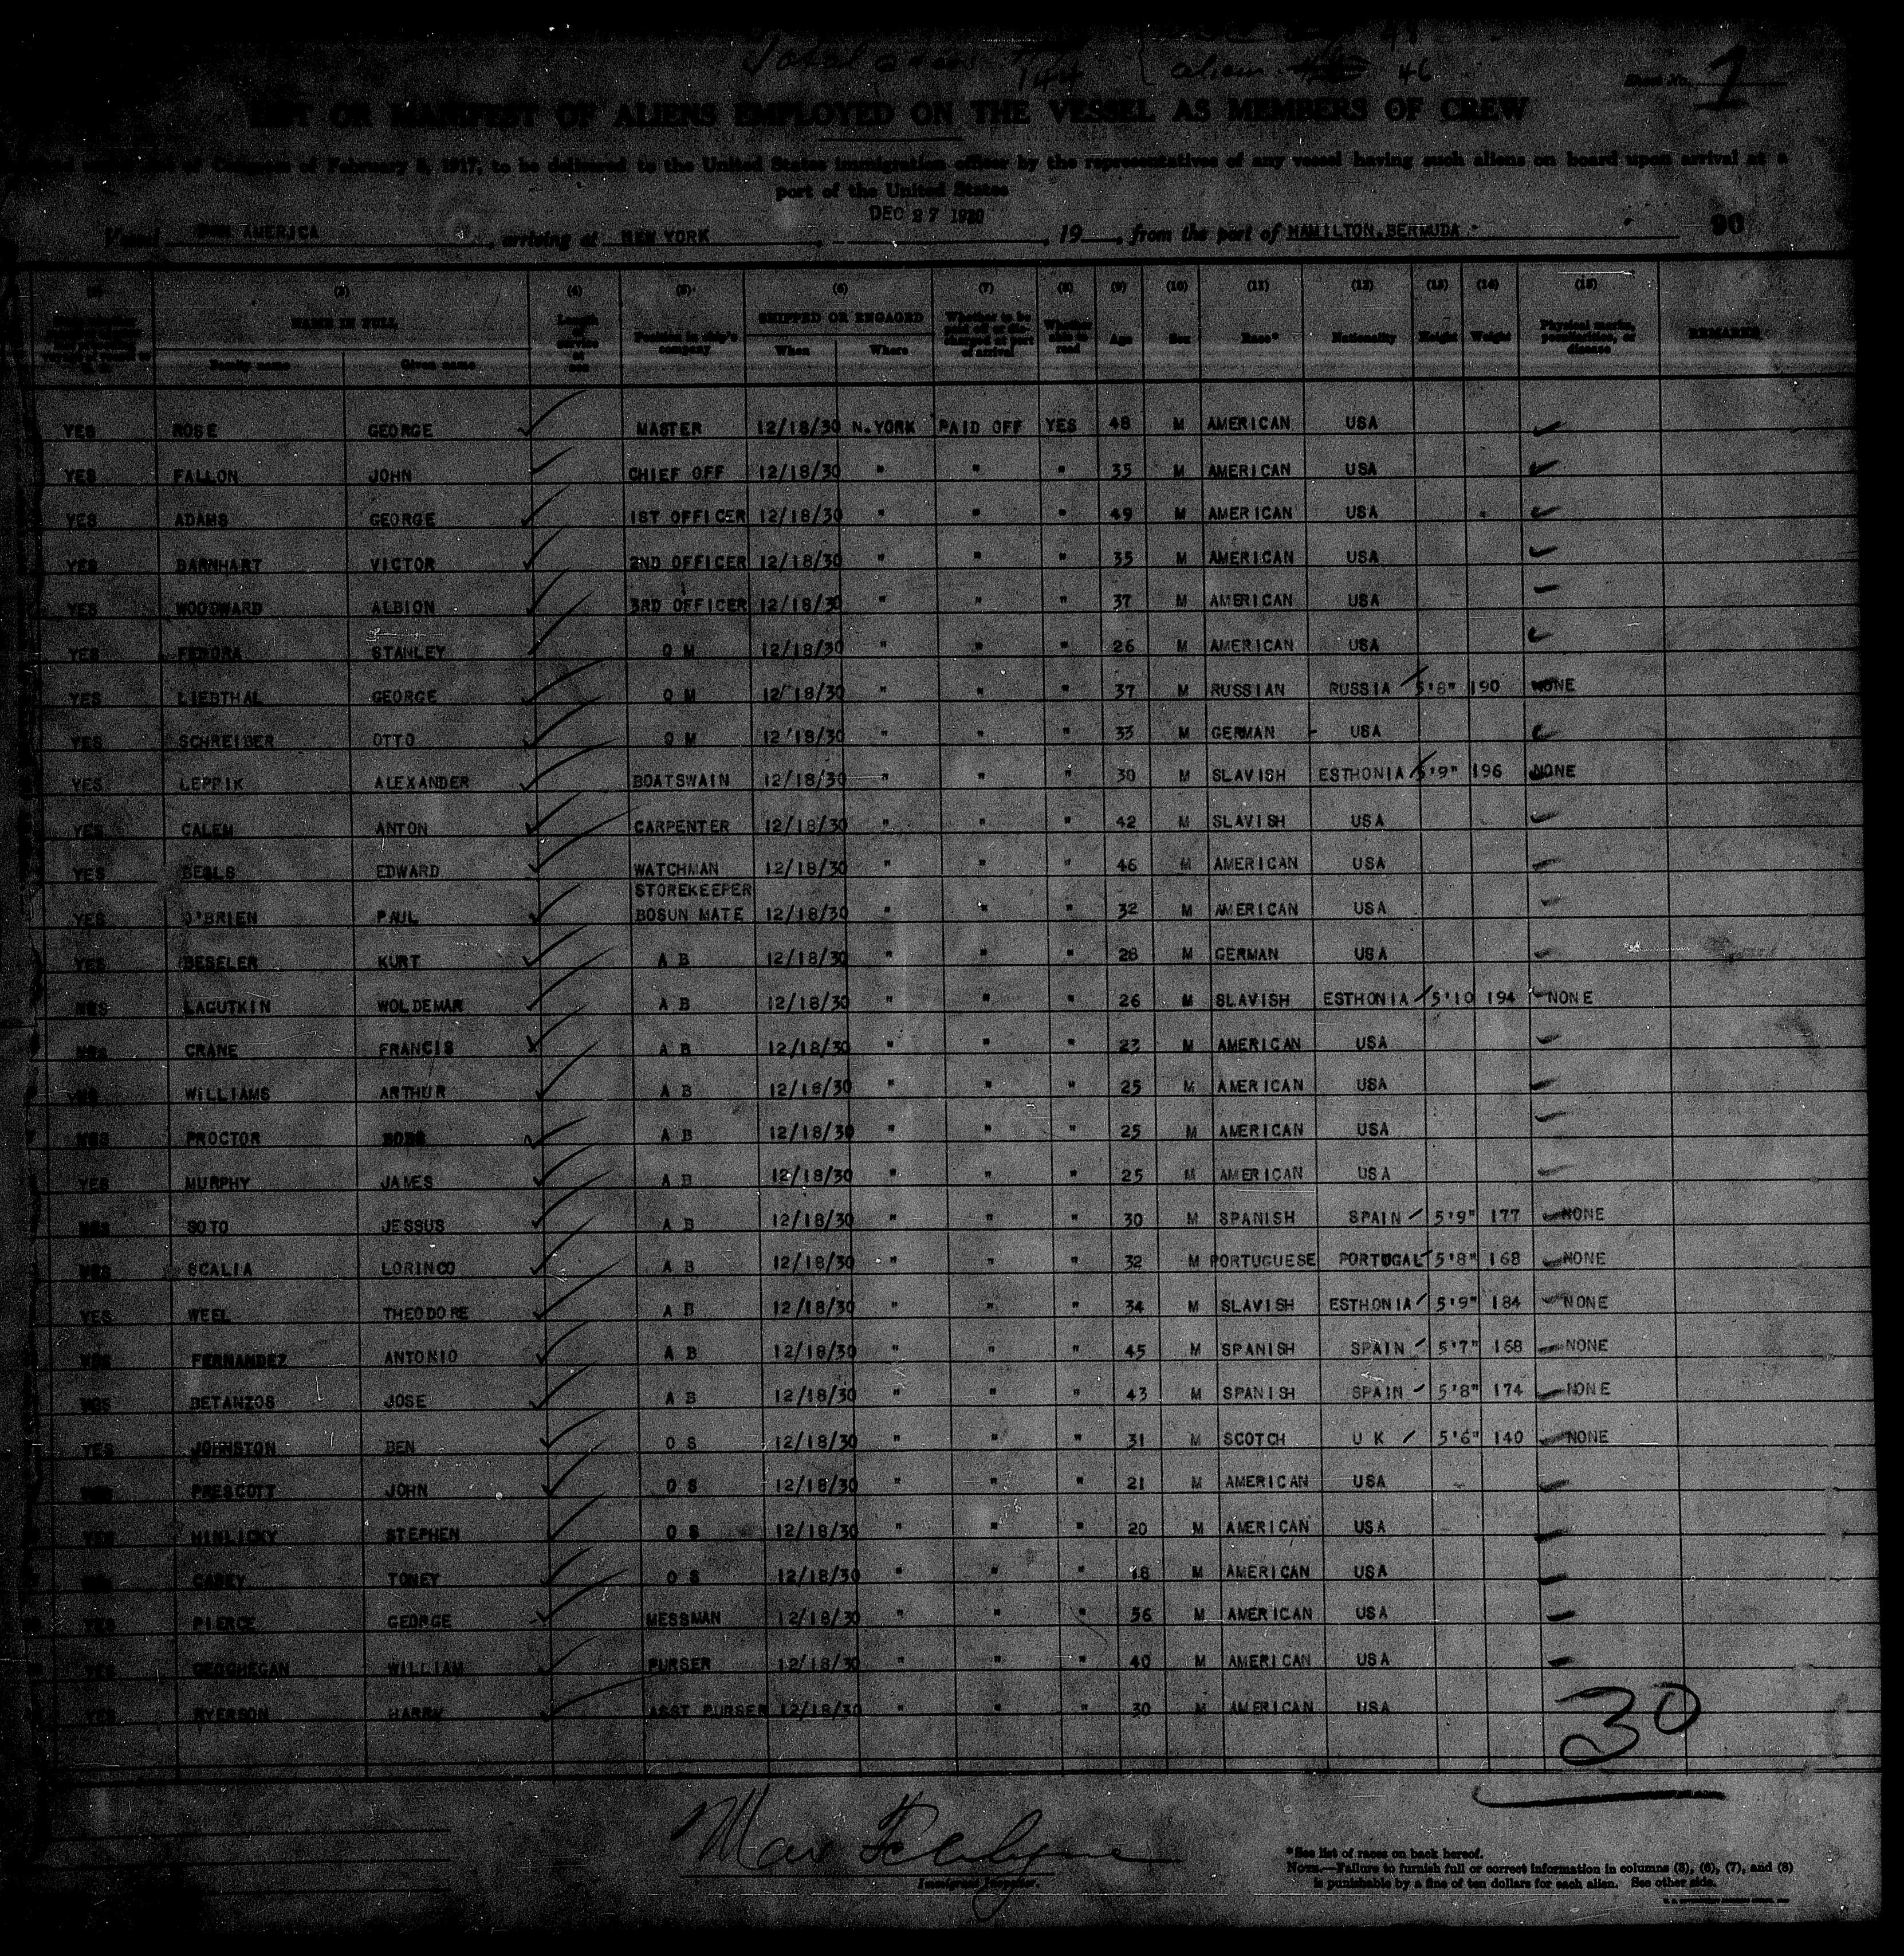 Total
144 { alien 46
Sheet No. 1
LIST OR MANIFEST OF ALIENS EMPLOYED ON THE VESSEL AS MEMBERS OF CREW
of Congress of February 5, 1917, to be delivered to the United States immigration officer by the representatives of any vessel having such aliens on board upon arrival at a
port of the United States
DEC 27 1930
Vessel PAN AMERICA, arriving at NEW YORK, 19, from the port of HAMILTON, BERMUDA 90
(3) (4) (5) (6) (7) (8) (9) (10) (11) (12) (13) (14) (15)
NAME IN FULL Length of service at sea Position in ship's company SHIPPED OR ENGAGED Whether to be paid off or discharged at port of arrival Whether able to read Age Sex Race* Nationality Height Weight Physical marks, peculiarities, or disease REMARKS
Family name Given name When Where
YES ROSE GEORGE MASTER 12/18/30 N.YORK PAID OFF YES 48 M AMERICAN USA
YES FALLON JOHN CHIEF OFF 12/18/30 " " " 35 M AMERICAN USA
YES ADAMS GEORGE 1ST OFFICER 12/18/30 " " " 49 M AMERICAN USA
YES BARNHART VICTOR 2ND OFFICER 12/18/30 " " " 35 M AMERICAN USA
YES WOODWARD ALBION 3RD OFFICER 12/18/30 " " " 37 M AMERICAN USA
YES FEDORA STANLEY Q M 12/18/30 " " " 26 M AMERICAN USA
YES LIEBTHAL GEORGE Q M 12/18/30 " " " 37 M RUSSIAN RUSSIA 5'8" 190 NONE
YES SCHREIBER OTTO Q M 12/18/30 " " " 33 M GERMAN USA
YES LEPPIK ALEXANDER BOATSWAIN 12/18/30 " " " 30 M SLAVISH ESTHONIA 5'9" 196 NONE
YES CALEM ANTON CARPENTER 12/18/30 " " " 42 M SLAVISH USA
YES BEALS EDWARD WATCHMAN 12/18/30 " " " 46 M AMERICAN USA
STOREKEEPER
YES O'BRIEN PAUL BOSUN MATE 12/18/30 " " " 32 M AMERICAN USA
YES BESELER KURT A B 12/18/30 " " " 28 M GERMAN USA
YES LAGUTKIN WOLDEMAR A B 12/18/30 " " " 26 M SLAVISH ESTHONIA 5'10 194 NONE
YES CRANE FRANCIS A B 12/18/30 " " " 23 M AMERICAN USA
YES WILLIAMS ARTHUR A B 12/18/30 " " " 25 M AMERICAN USA
YES PROCTOR A B 12/18/30 " " " 25 M AMERICAN USA
YES MURPHY JAMES A B 12/18/30 " " " 25 M AMERICAN USA
YES SOTO JESSUS A B 12/18/30 " " " 30 M SPANISH SPAIN 5'9" 177 NONE
YES SCALIA LORINCO A B 12/18/30 " " " 32 M PORTUGUESE PORTUGAL 5'8" 168 NONE
YES WEEL THEODORE A B 12/18/30 " " " 34 M SLAVISH ESTHONIA 5'9" 184 NONE
YES FERNANDEZ ANTONIO A B 12/18/30 " " " 45 M SPANISH SPAIN 5'7" 168 NONE
YES BETANZOS JOSE A B 12/18/30 " " " 43 M SPANISH SPAIN 5'8" 174 NONE
YES JOHNSTON BEN O S 12/18/30 " " " 31 M SCOTCH U K 5'6" 140 NONE
YES PRESCOTT JOHN O S 12/18/30 " " " 21 M AMERICAN USA
YES HINLICKY STEPHEN O S 12/18/30 " " " 20 M AMERICAN USA
YES CAREY TONEY O S 12/18/30 " " " 18 M AMERICAN USA
YES PIERCE GEORGE MESSMAN 12/18/30 " " " 56 M AMERICAN USA
YES GEOGHEGAN WILLIAM PURSER 12/18/30 " " " 40 M AMERICAN USA
YES RYERSON HARRY ASST PURSER 12/18/30 " " " 30 M AMERICAN USA
30
Immigrant Inspector.
*See list of races on back hereof.
NOTE.—Failure to furnish full or correct information in columns (3), (6), (7), and (8)
is punishable by a fine of ten dollars for each alien. See other side.